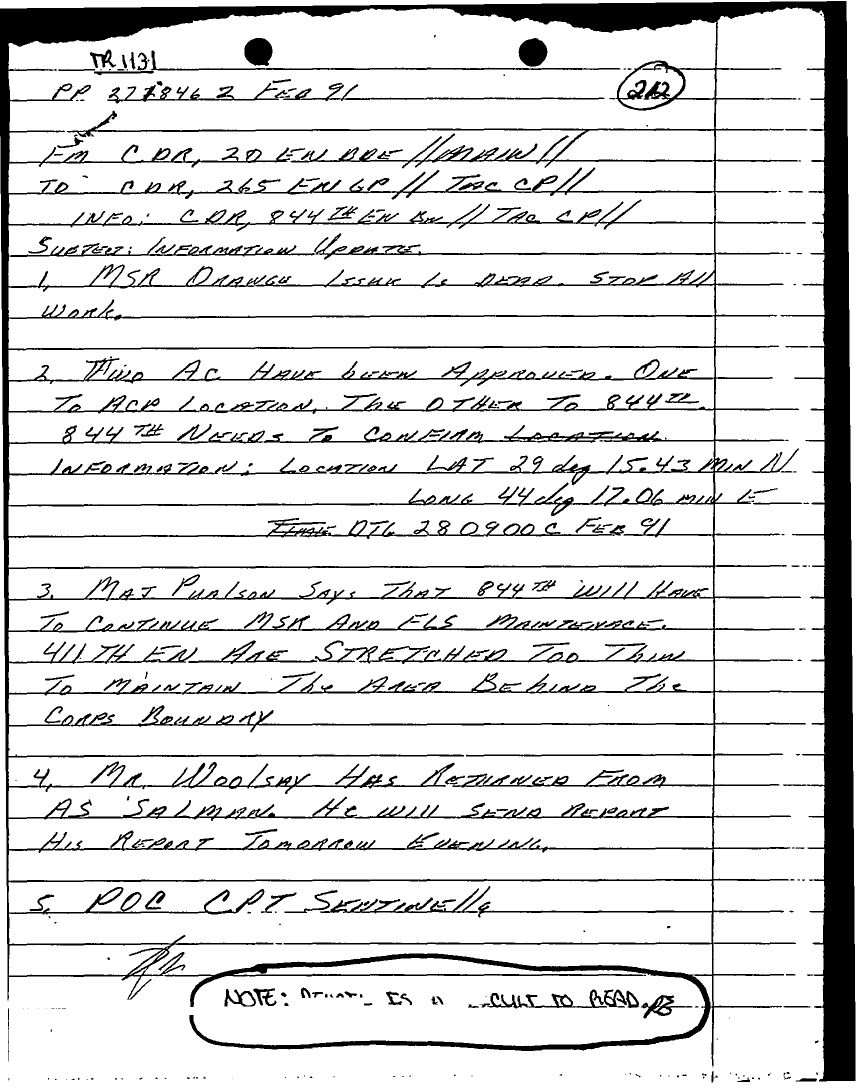 TR 1131
PP 271846 Z FEB 91
212
FM CDR, 20 EN BDE //MAIN//
TO CDR, 265 EN GP // TAC CP//
INFO: CDR, 844TH EN BN // TAC CP//
SUBJECT: INFORMATION UPDATE.
1, MSR ORANGE ISSUE IS DEAD. STOP All
WORK.
2. TWO AC HAVE bEEN APPROVED. ONE
TO ACP LOCATION, THE OTHER TO 844TH.
844TH NEEDS TO CONFIRM LOCATION
INFORMATION: LOCATION LAT 29 deg 15.43 MIN N
LONG 44 deg 17.06 MIN E
DTG 280900C FEB 91
3. MAJ PUALSON SAYS THAT 844TH WIll HAVE
TO CONTINUE MSR AND FLS MAINTENACE.
411TH EN ARE STRETCHED TOO THIN
TO MAINTAIN The AREA BEhIND The
CORPS BOUNDRY
4, MR. WOOlSAY HAS RETURNED FROM
AS SALMAN. He WIll SEND REPORT
HIS REPORT TOMORROW EVENING.
5. POC CPT SENTINElla
NOTE: IS TO READ.